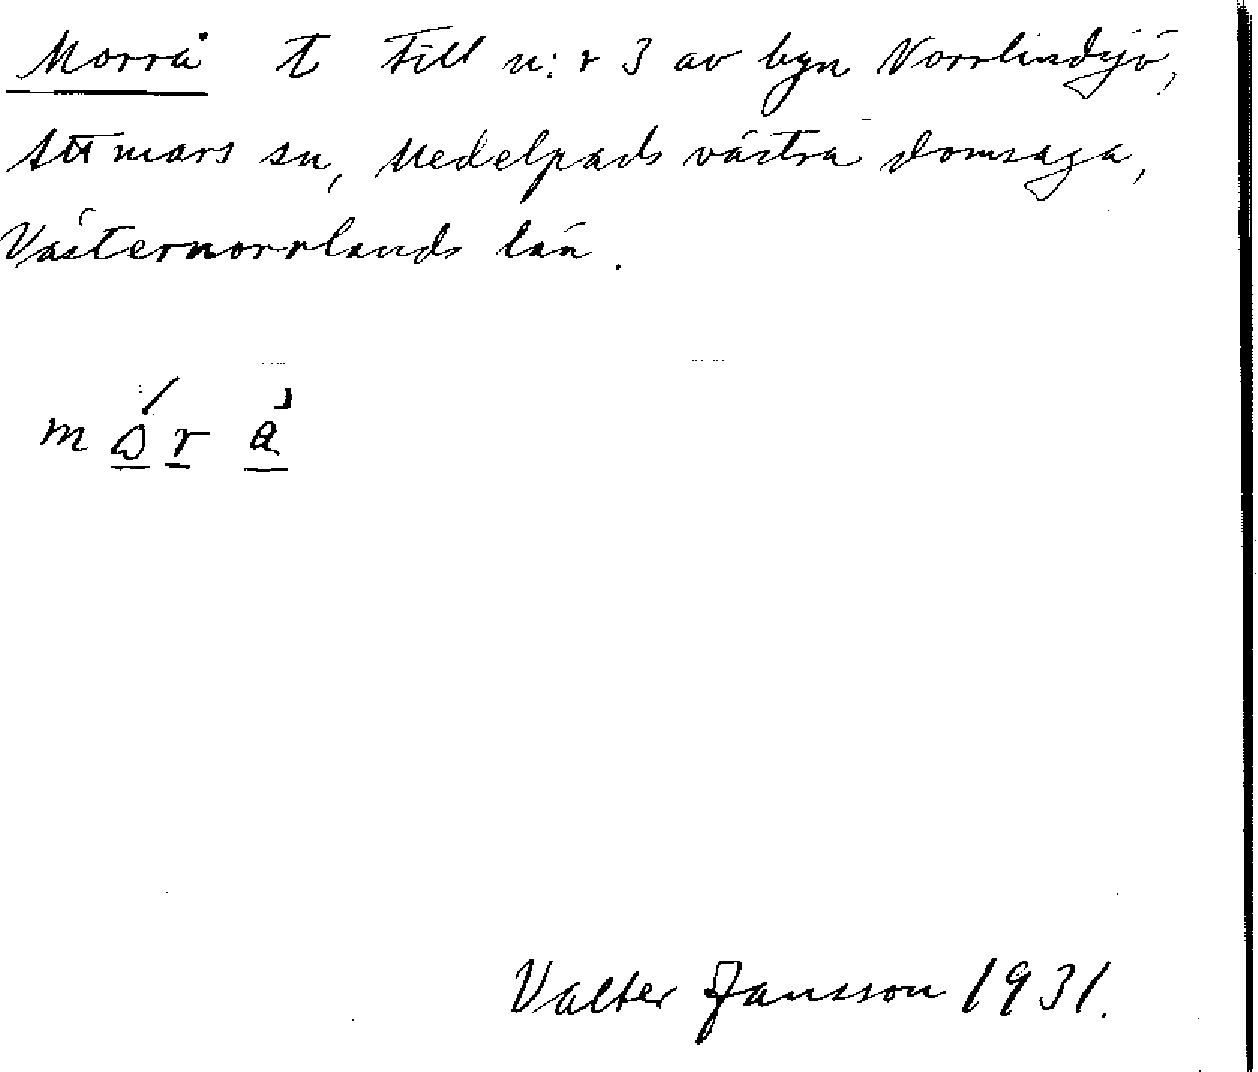 Morrå t till n:r 3 av byn Norrlindsjö,
Attmars sn, Medelpads västra domsaga,
Västernorrlands län.
Valter Jansson 1931.